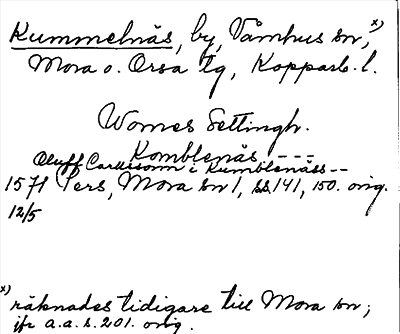 Kummelnäs, by, Våmhus sn, x)
Mora o. Orsa tg, Kopparb. l.
Womes Settingh.
Komblenäs - - -
Oluff Carlssonn i Kumblenäss - -
1571 Pers, Mora sn 1, ss. 141, 150. orig.
12/5
x) räknades tidigare till Mora sn;
jfr a.a. s. 201. orig.